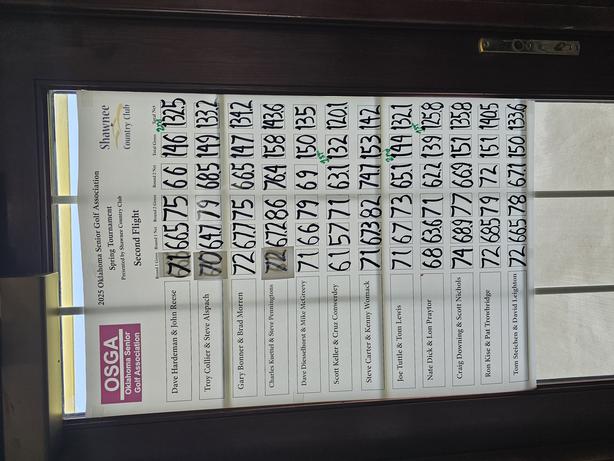 OSGA
Oklahoma Senior
Golf Association
2025 Oklahoma Senior Golf Association
Spring Tournament
Presented by Shawnee Country Club
Second Flight
Shawnee
Country Club
Round 1 Gross Round 1 Net Round 2 Gross Round 2 Net Total Gross Total Net
Dave Hardeman & John Reese 71 66.5 75 66 146 2nd 132.5
Troy Collier & Steve Alspach 70 64.7 79 68.5 149 133.2
Gary Bonner & Brad Morren 72 67.7 75 66.5 147 134.2
Charles Kuettel & Steve Penningtons 72 67.2 86 76.4 158 143.6
Dave Diesselhorst & Mike McGreevy 71 66 79 69 150 135
Scott Keller & Cruz Converdey 61 57 71 63.1 1st 132 120.1
Steve Carter & Kenny Womack 71 67.3 82 74.7 153 142
Joe Tuttle & Tom Lewis 71 67 73 65.1 2nd 144 132.1
Nate Dick & Lon Praytor 68 63.6 71 62.2 139 1st 125.8
Craig Downing & Scott Nichols 74 68.9 77 66.9 151 135.8
Ron Kise & Pat Trowbridge 72 68.5 79 72 151 140.5
Tom Steichen & David Leighton 72 66.5 78 67.1 150 133.6